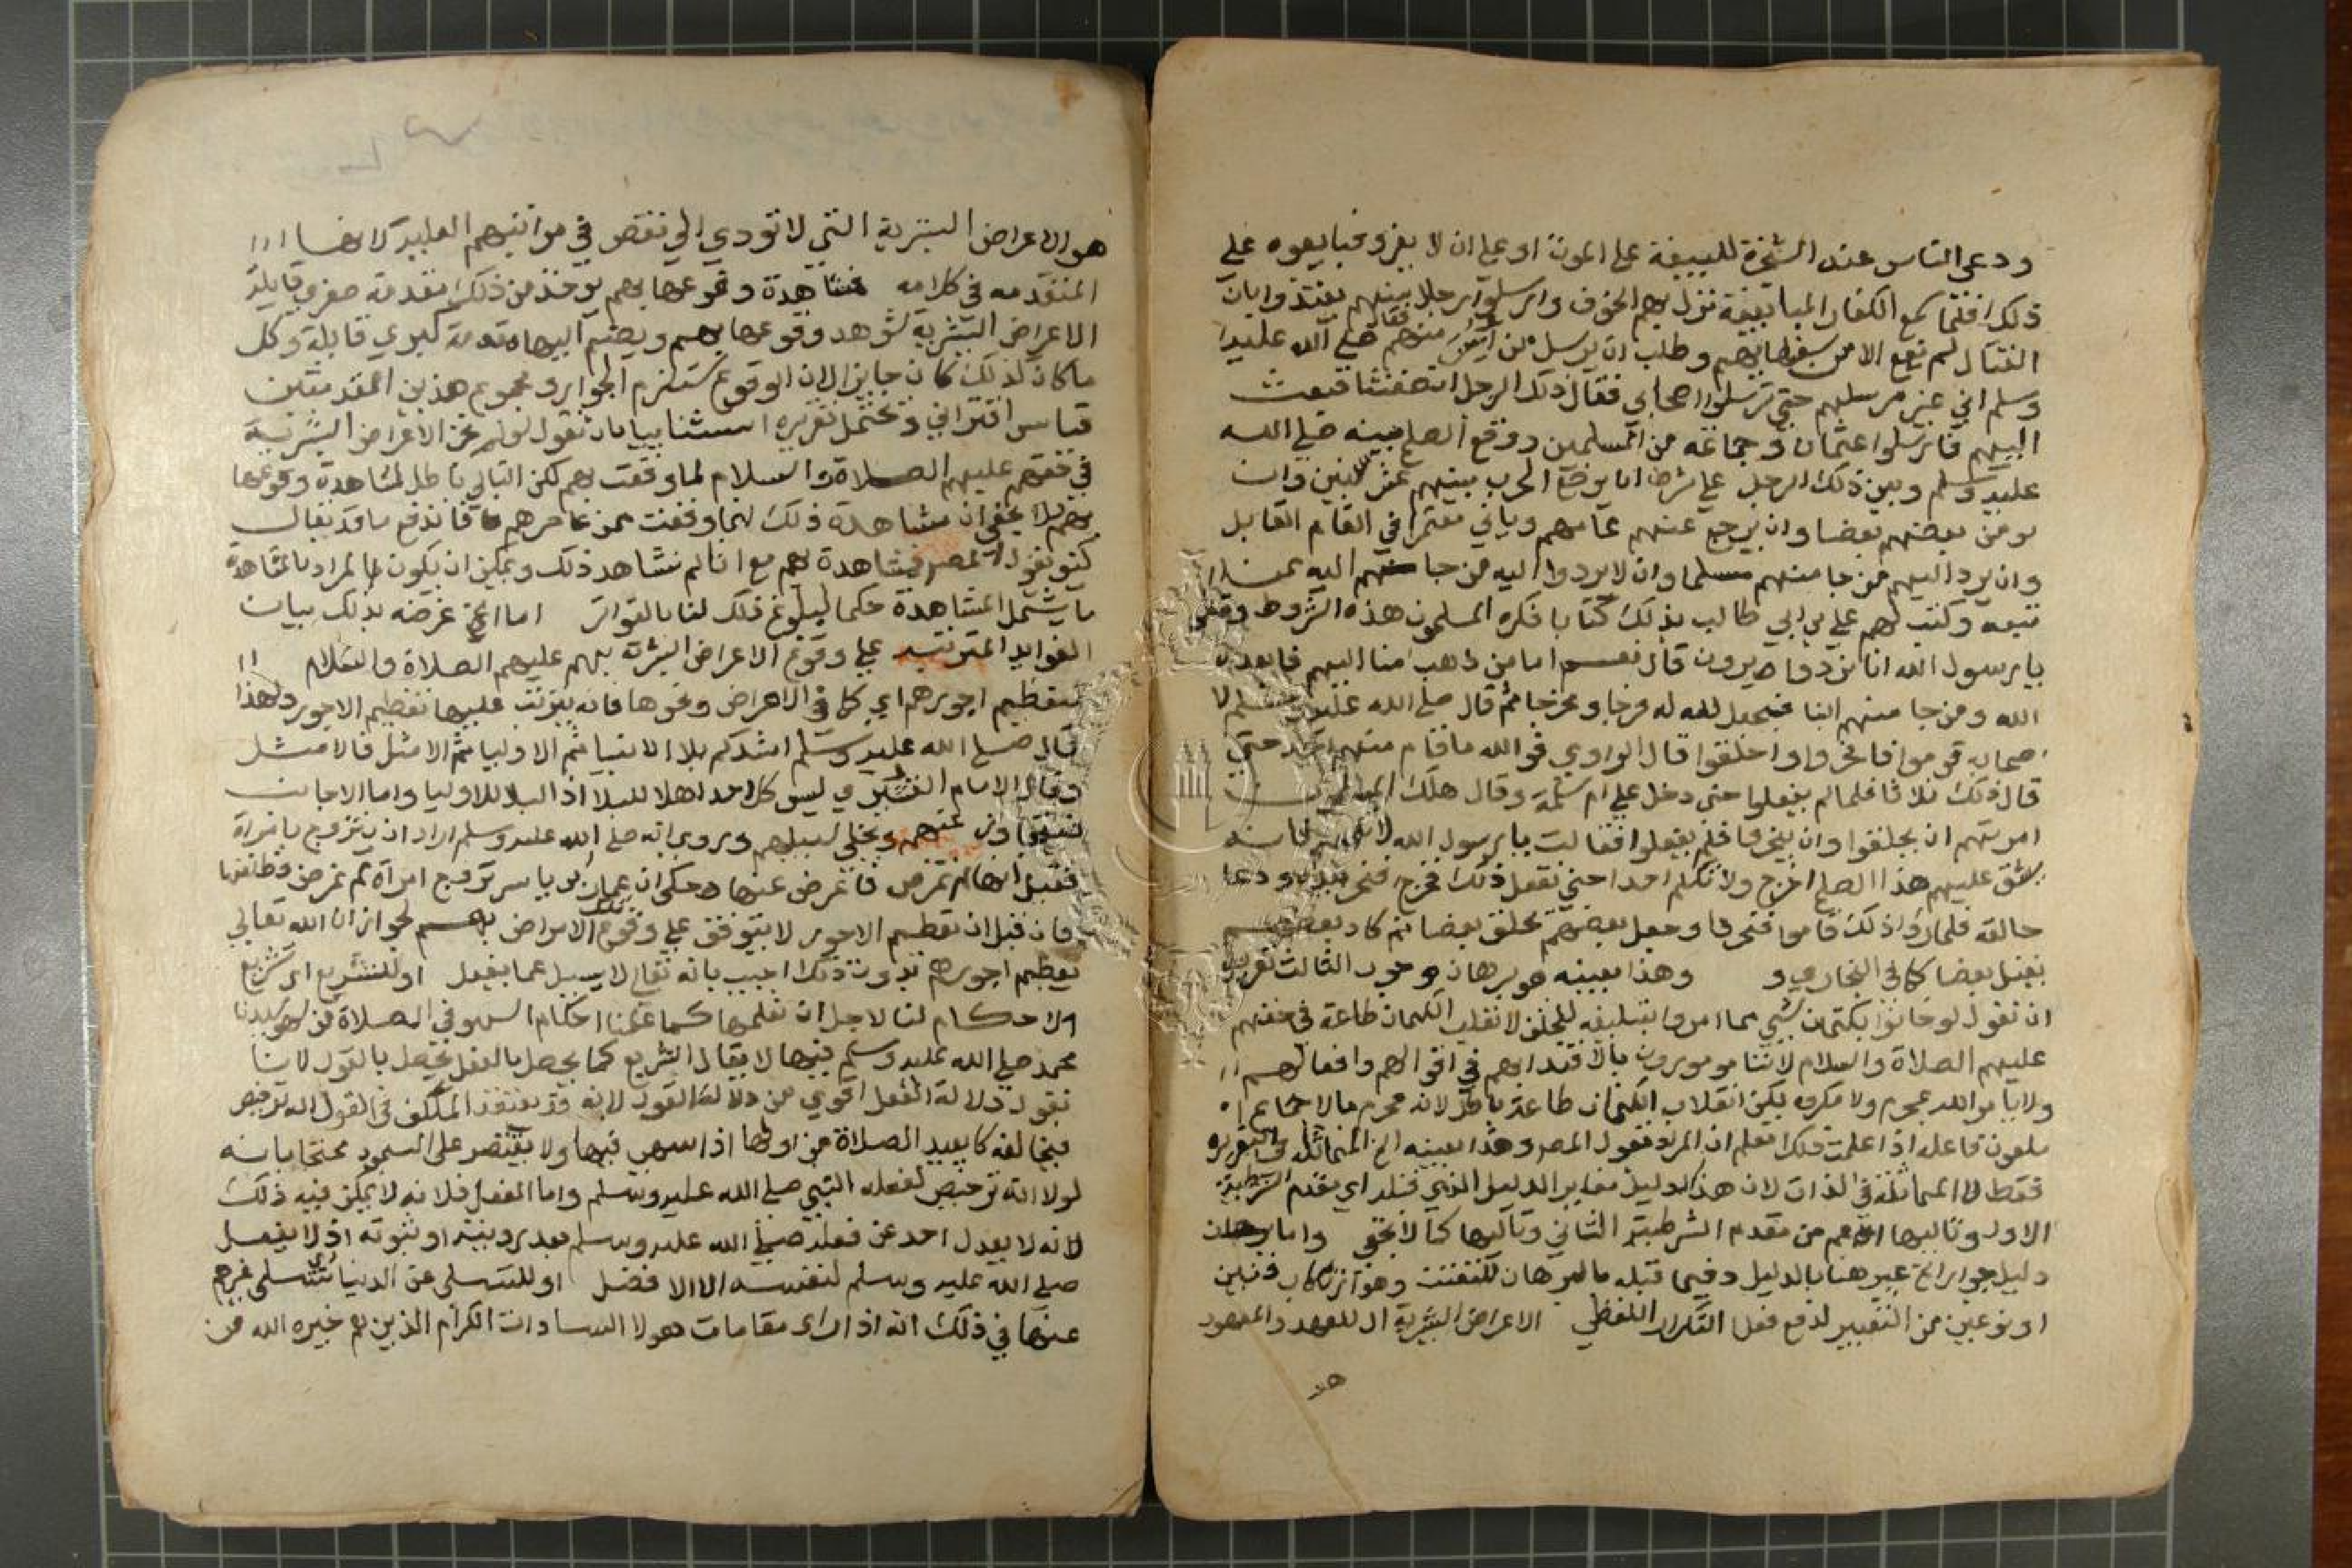 ودعي الناس عند الشجرة للبيعة علي الموت او علي ان لا يفروا فبايعوه علي
ذلك فلما سمع الكفار المبايعة نزل بهم الخوف وارسلوا رجلا منهم يعتذر وبان
القتال لم يقع الا من سفهائهم وطلب ان يرسل من اسر منهم فقال صلي الله عليه
وسلم اني غير مرسلهم حتي ترسلوا اصحابي فقال ذلك الرجل انصفتنا فبعث
اليهم فارسلوا عثمان وجماعة من المسلمين ووقع الصلح بينه صلي الله
عليه وسلم وبين ذلك الرجل علي شرط ان يوضع الحرب بينهم عشر سنين وان
يومن بعضهم بعضا وان يرجع عنهم عامهم وياتي معتمرا في العام القابل
وان يرد اليهم من جا منهم مسلما وان لا يردوا اليه من جا اليه ممن
تبعه وكتب لهم علي بن ابي طالب بذلك كتابا فكره المسلمون هذه الشروط وقالوا
يا رسول الله انا نرد قال نعم اما من ذهب منا اليهم فابعده
الله ومن جا منهم الينا فيجعل الله له فرجا ومخرجا ثم قال صلي الله عليه وسلم لا
صحابه قوموا فانحروا واحلقوا قال الراوي فوالله ما قام منهم احد حتي
قال ذلك ثلاثا فلما لم يفعلوا حتي دخل علي ام سلمة وقال هلك المسلمون
امرتهم ان يحلقوا وان ينحروا فلم يفعلوا فقالت يا رسول الله لا تلمهم فانه
شق عليهم هذا الصلح اخرج ولا تكلم احدا حتي تفعل ذلك فخرج فنحر بيده ودعا
حالقه فلما راوا ذلك قاموا فنحروا وجعل بعضهم يحلق بعضا ثم كاد بعضهم
يقتل بعضا كما في البخاري وهذا بعينه هو برهان وجوب الثالث تقريره
ان تقول لو خانوا بكتمان شي مما امروا بتبليغه للخلق لانقلب الكتمان طاعة في حقهم
عليهم الصلاة والسلام لاننا مومورون بالاقتدا بهم في اقوالهم وافعالهم
ولا يامر الله بمحرم ولا مكروه لكن انقلاب الكتمان طاعة باطل لانه محرم بالاجماع
ملعون فاعله اذا علمت ذلك تعلم ان المراد بقول المصر وهذا بعينه الخ المماثلة في التقرير
فقط لا المماثلة في الذات لان هذا الدليل مغاير الدليل الذي قبله اي مقدم الشرطية
الاول وتاليها اعم من مقدم الشرطية الثاني وتاليها كما لا يخفي واما برهان
دليل جواز الخ عبر هنا بالدليل وفيما قبله بالبرهان للتفنن وهو ارتكاب فنين
او نوعين من التعبير لدفع ثقل التكرار اللفظي الاعراض البشرية ال للعهد والمعهود
هو
هو الاعراض البشرية التي لا تودي الي نقص في مراتبهم العلية
المتقدمه في كلامه فمشاهدة وقوعها بهم يوخذ من ذلك مقدمة صغري قايلة
الاعراض البشرية شوهد وقوعها بهم ويضم اليها مقدمة كبري قايلة وكل
ما كان كذلك كان جايزا لان الوقوع يستلزم الجواز ومجموع هذين المقدمتين
قياس اقتراني ويحتمل تقريره استثناييا بان تقول لو لم تجز الاعراض البشرية
في حقهم عليهم الصلاة والسلام لما وقعت بهم لكن التالي باطل لمشاهدة وقوعها
بهم ولا يخفي ان مشاهدة ذلك انما وقعت ممن عاصرهم فاندفع ما قد يقال
كيف يقول المصر فمشاهدة بهم مع انا لم نشاهد ذلك ويمكن ان يكون المراد بالمشاهدة
ما يشمل المشاهدة حكما لبلوغ ذلك لنا بالتواتر اما الخ غرضه بذلك بيان
الفوايد المترتبه علي وقوع الاعراض البشرية بهم عليهم الصلاة والسلام
لتعظيم اجورهم اي كما في الامراض ونحوها فانه يترتب عليها تعظيم الاجور ولهذا
قال صلي الله عليه وسلم اشدكم بلا الانبيا ثم الاوليا ثم الامثل فالامثل
وقال الامام القشيري ليس كل احد اهلا للبلا اذ البلا للاوليا واما الاجانب
فيتجاوز عنهم ويخلي سبيلهم وروي انه صلي الله عليه وسلم اراد ان يتزوج بامراة
فقيل انها لم تمرض فاعرض عنها وحكي ان عمار بن ياسر تزوج امراة لم تمرض فطلقها
فان قيل ان تعظيم الاجور لا يتوقف علي وقوع تلك الامراض بهم لجواز ان الله تعالي
يعظم اجورهم بدون ذلك اجيب بانه تعالي لا يسيل عما يفعل او للتشريع اي تشريع
الاحكام لنا لاجل ان نعلمها كما علمنا احكام السهو في الصلاة من سهو سيدنا
محمد صلي الله عليه وسلم فيها لا يقال التشريع كما يحصل بالفعل يحصل بالقول لانا
نقول دلالة الفعل اقوي من دلالة القول لانه قد يعتقد المكلف في القول انه ترخيص
فيخالفه كان يعيد الصلاة من اولها اذا سهي فيها ولا يقتصر علي السجود محتجا بانه
لولا انه ترخيص لفعله النبي صلي الله عليه وسلم واما الفعل فلا نه لا يمكن فيه ذلك
لانه لا يعدل احد عن فعله صلي الله عليه وسلم بعد رويته او ثبوته اذ لا يفعل
صلي الله عليه وسلم لنفسه الا الافضل او للتسلي عن الدنيا اي تسلي غيرهم
عنها في ذلك انه اذا راي مقامات هولا السادات الكرام الذين هم خيره الله من